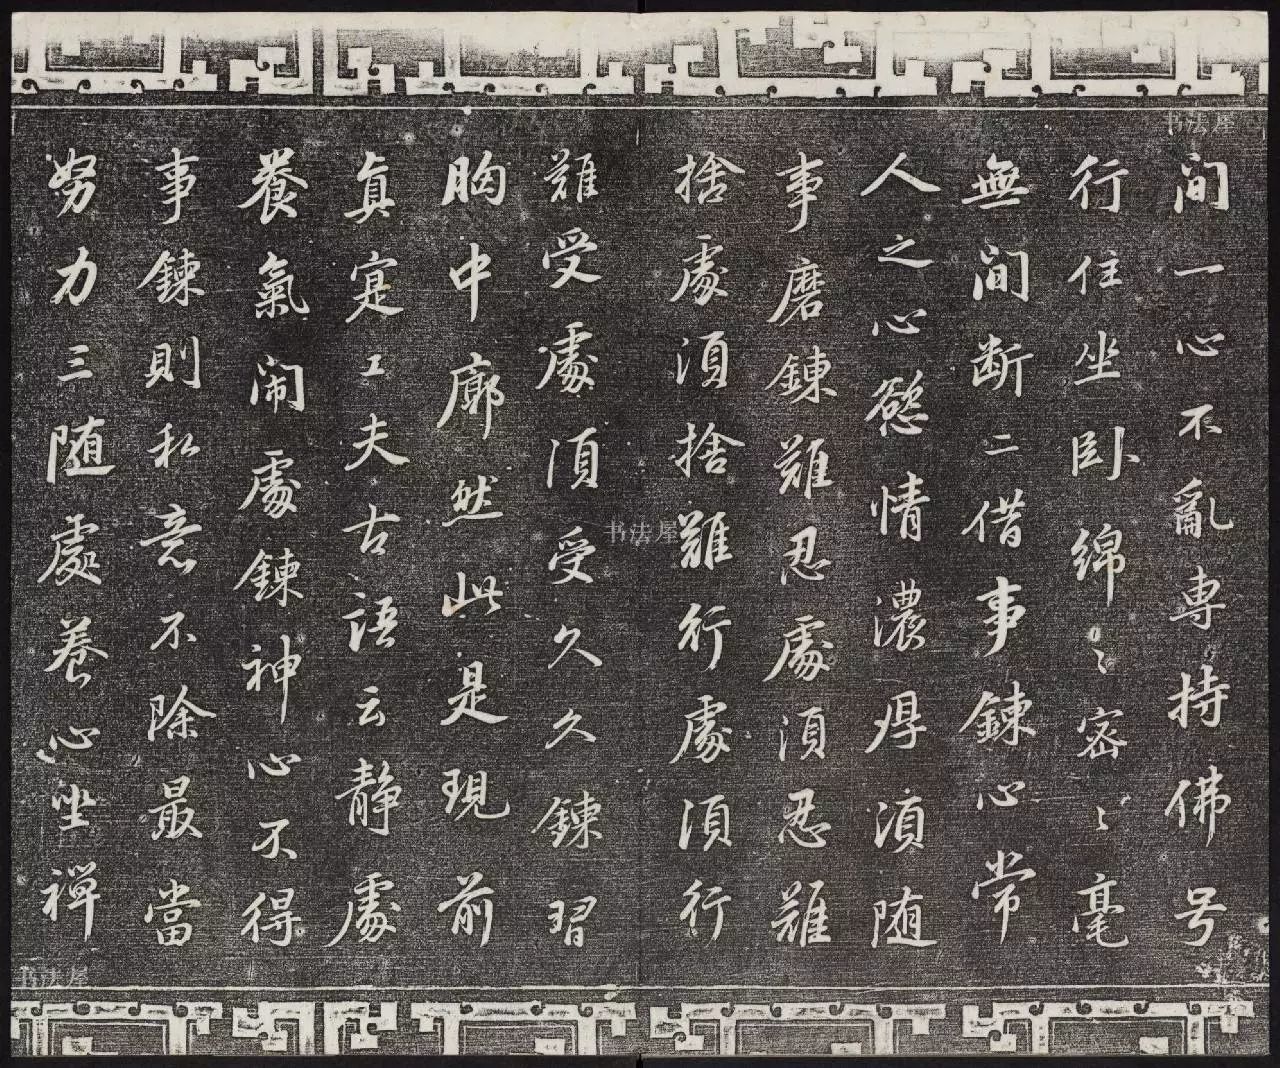 间一心不亂専持佛号
行住坐卧綿〻密〻毫
無间断二借事鍊心常
人之心慾情濃厚湏随
事磨鍊難忍處湏忍難
捨處湏捨難行處湏行
難受處湏受久久鍊習
胸中廓然此是現前
真寔工夫古語云静處
養氣闹處鍊神心不得
事鍊則私意不除最當
努力三随處養心坐禪
书法屋
书法屋
书法屋